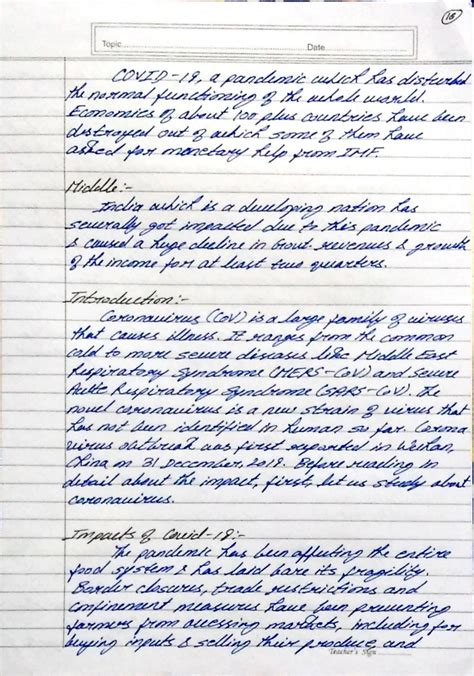 18
Topic
Date
COVID-19, a pandemic which has disturbed
the normal functioning of the whole world.
Economics of about 100 plus countries have been
destroyed out of which some of them have
asked for monetary help from IMF.
Middle:-
India which is a developing nation has
severally got impacted due to this pandemic
& caused a huge decline in Govt. revenues & growth
of the income for at least two quarters.
Introduction:-
Coronavirus (CoV) is a large family of viruses
that causes illness. It ranges from the common
cold to more severe diseases like Middle East
Respiratory Syndrome (MERS-CoV) and severe
Acute Respiratory Syndrome (SARS-CoV). The
novel coronavirus is a new strain of virus that
has not been identified in human so far. Corona
virus outbreak was first reported in Wuhan,
China on 31 December, 2019. Before reading in
detail about the impact, first, let us study about
coronavirus.
Impacts of Covid-19:-
The pandemic has been affecting the entire
food system & has laid bare its fragility.
Border closures, trade restrictions and
confinement measures have been preventing
farmers from accessing markets, including for
buying inputs & selling their produce, and
Teacher's Sign